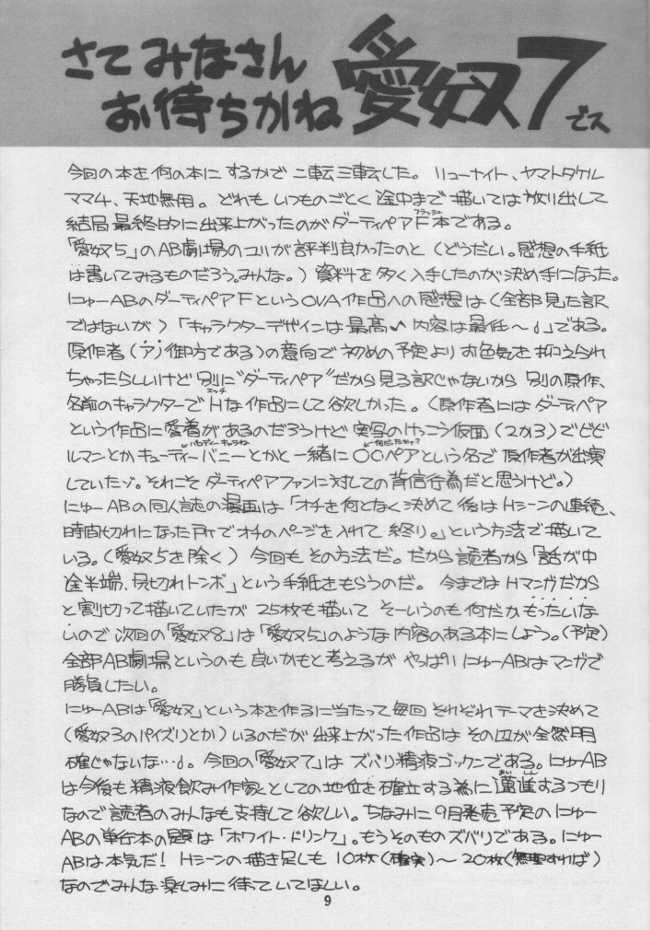 さてみなさん
お待ちかね 愛奴7 でス
今回の本を何の本にするかで二転三転した。リューナイト、ヤマトタケル
ママ4、天地無用。どれもいつものごとく途中まで描いては放り出して
結局最終的に出来上がったのがダーティペアF本である。
フラッシュ
「愛奴5」のAB劇場のユリが評判良かったのと(どうだい。感想の手紙
は書いてみるものだろう。みんな。)資料を多く入手したのが決め手になった。
にゅーABのダーティペアFというOVA作品への感想は(全部見た訳
ではないが)「キャラクターデザインは最高♪内容は最低~」である。
原作者(ア)御方である)の意向で初めの予定よりお色気を抑えられ
ちゃったらしいけど別に"ダーティペア"だから見る訳じゃないから別の原作、
名前のキャラクターでHな作品にして欲しかった。(原作者にはダーティペア
エッチ
という作品に愛着があるのだろうけど実写のけっこう仮面(2か3)でビビ
ルマンとかキューティーバニーとかと一緒に〇〇ペアという名で原作者が出演
していたゾ。それこそダーティペアファンに対しての背信行為だと思うけど。)
にゅーABの同人誌の漫画は「オチを何となく決めて後はHシーンの連続、
時間切れになった所でオチのページを入れて終り。」という方法で描いて
いる。(愛奴5を除く)今回もその方法だ。だから読者から「話が中
途半端、尻切れトンボ」という手紙をもらうのだ。今まではHマンガだから
と割切って描いていたが25枚も描いてそーいうのも何だかもったいな
いので次回の「愛奴8」は「愛奴5」のような内容のある本にしよう。(予定)
全部AB劇場というのも良いかもと考えるがやっぱりにゅーABはマンガで
勝負したい。
にゅーABは「愛奴」という本を作るに当たって毎回それぞれテーマを決めて
(愛奴3のパイズリとか)いるのだが出来上がった作品はその辺が全然明
確じゃないな…。今回の「愛奴7」はズバリ精液ゴックンである。にゅーAB
は今後も精液飲み作家としての地位を確立する為に邁進するつもり
なので読者のみんなも支持して欲しい。ちなみに9月発売予定のにゅー
ABの単行本の題は「ホワイト・ドリンク」。もうそのものズバリである。にゅー
ABは本気だ!Hシーンの描き足しも10枚(確実)~20枚(無理すれば)
なのでみんな楽しみに待っていてほしい。
9